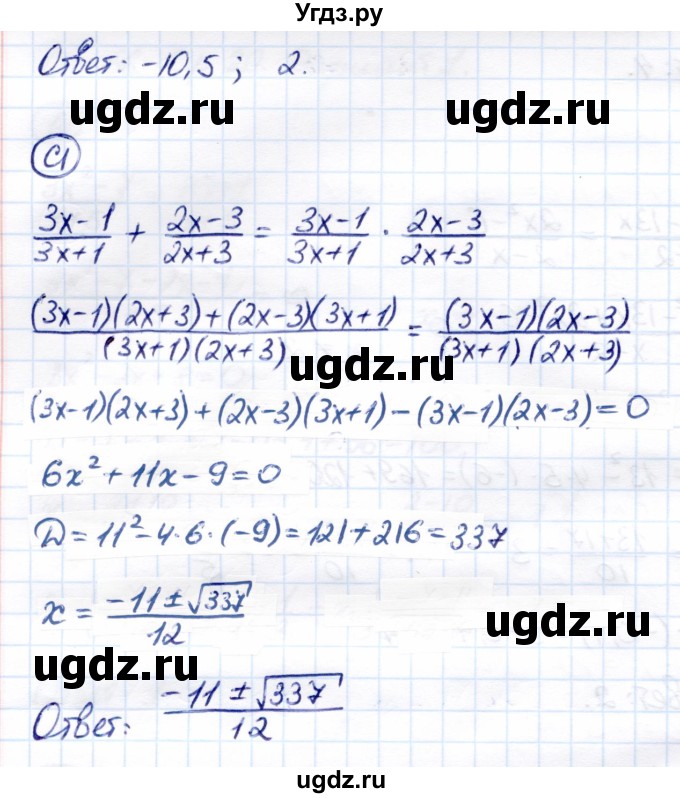 Угдз.ру
Ответ: -10,5; 2.
ugdz.ru ugdz.ru
C1
(3x-1)/(3x+1) + (2x-3)/(2x+3) = (3x-1)/(3x+1) · (2x-3)/(2x+3)
((3x-1)(2x+3)+(2x-3)(3x+1))/((3x+1)(2x+3)) = ((3x-1)(2x-3))/((3x+1)(2x+3))
ugdz.ru ugdz.ru
(3x-1)(2x+3)+(2x-3)(3x+1)-(3x-1)(2x-3)=0
6x²+11x-9=0
D=11²-4·6·(-9)=121+216=337
x = (-11±√337)/12
ugdz.ru
ugdz.ru
Ответ: (-11±√337)/12
ugdz.ru